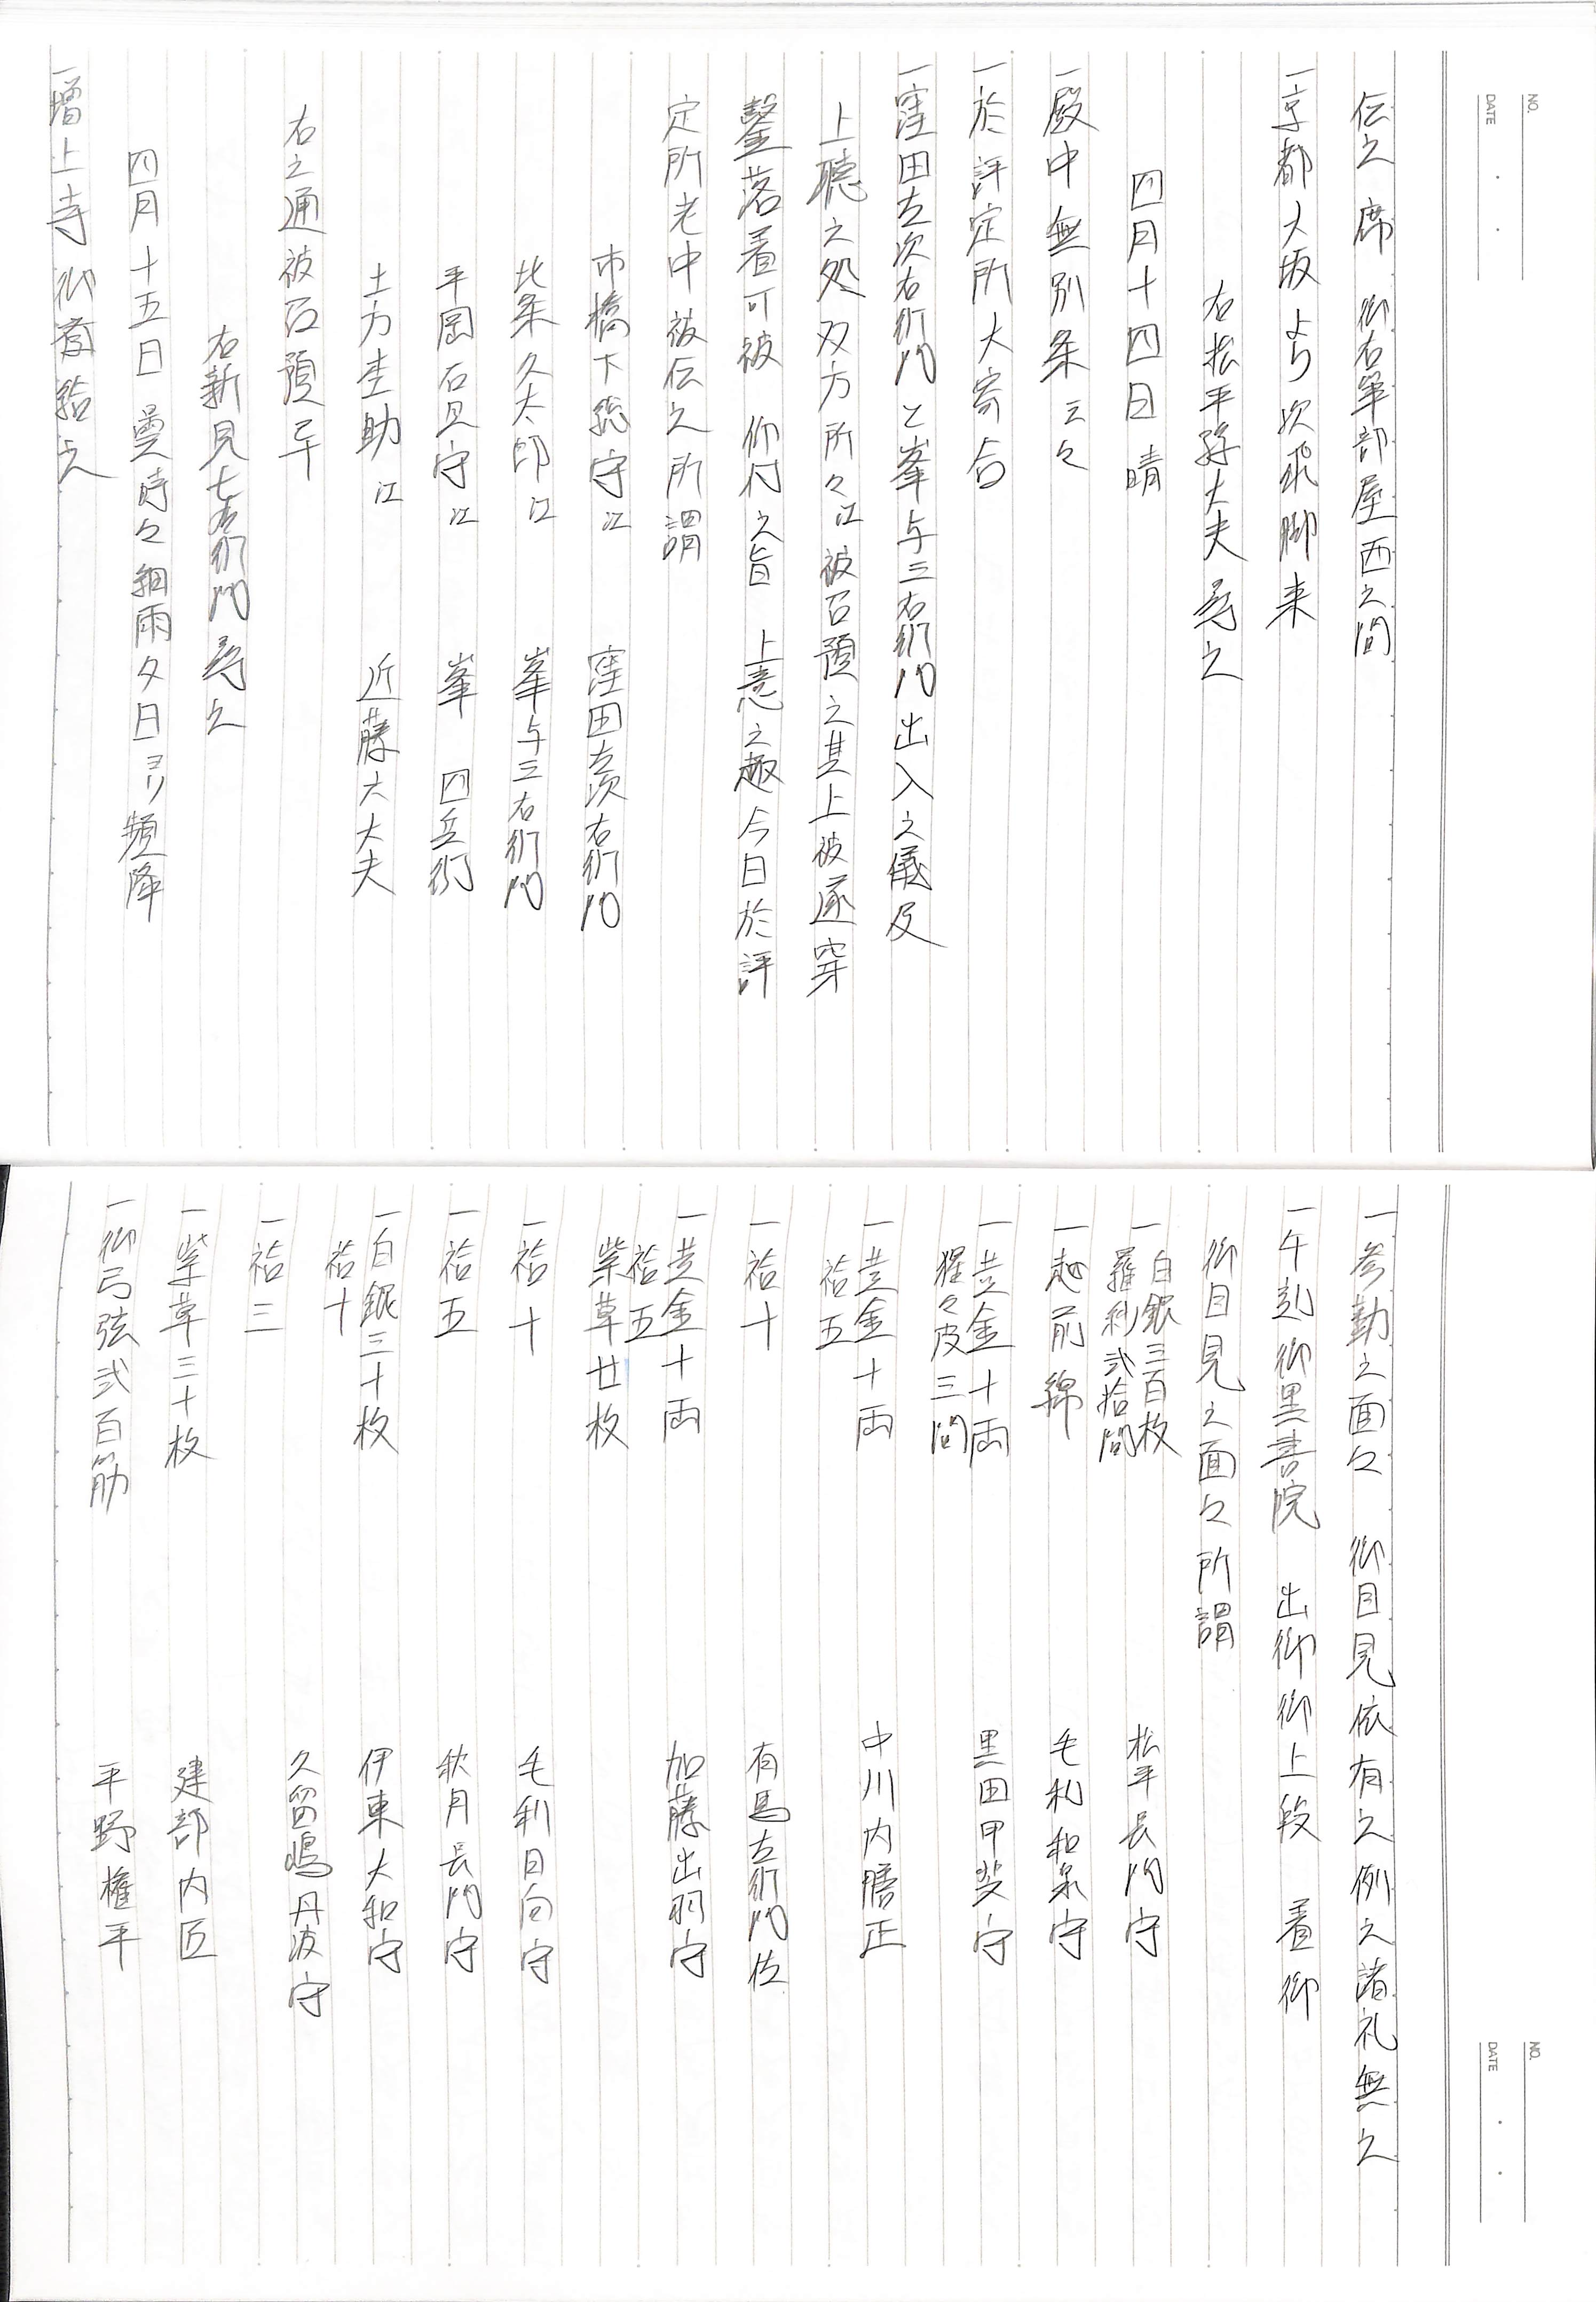 NO.
DATE
伝之席　御右筆部屋西之間
一京都大坂より次飛脚来
右松平孫大夫承之
四月十四日　晴
一殿中無別条云々
一於評定所大寄合
一窪田左次右衛門と峯与三右衛門出入之儀及
上聴之処双方所々江被召預之其上被遂穿
鑿落着可被　仰付之旨　上意之趣今日於評
定所老中被伝之所謂
市橋下総守江　窪田左次右衛門
北条久太郎江　峯与三右衛門
平岡石見守江　峯　四兵衛
土方杢助江　近藤六大夫
右之通被召預畢
右新見七右衛門承之
四月十五日　曇時々細雨夕日ヨリ頻降
一増上寺　御斎詣之
NO.
DATE
一参勤之面々　御目見依有之例之諸礼無之
一午刻御黒書院　出御御上段　着御
御目見之面々所謂
一白銀三百枚
羅紗弐拾間　松平長門守
一越前綿　毛利和泉守
一黄金十両
猩々皮三間　黒田甲斐守
一黄金十両
袷五　中川内膳正
一袷十　有馬左衛門佐
一黄金十両
袷五
紫草廿枚　加藤出羽守
一袷十　毛利日向守
一袷五　秋月長門守
一白銀三十枚
袷十　伊東大和守
一袷三　久留嶋丹波守
一紫草三十枚　建部内匠
一御弓弦弐百筋　平野権平